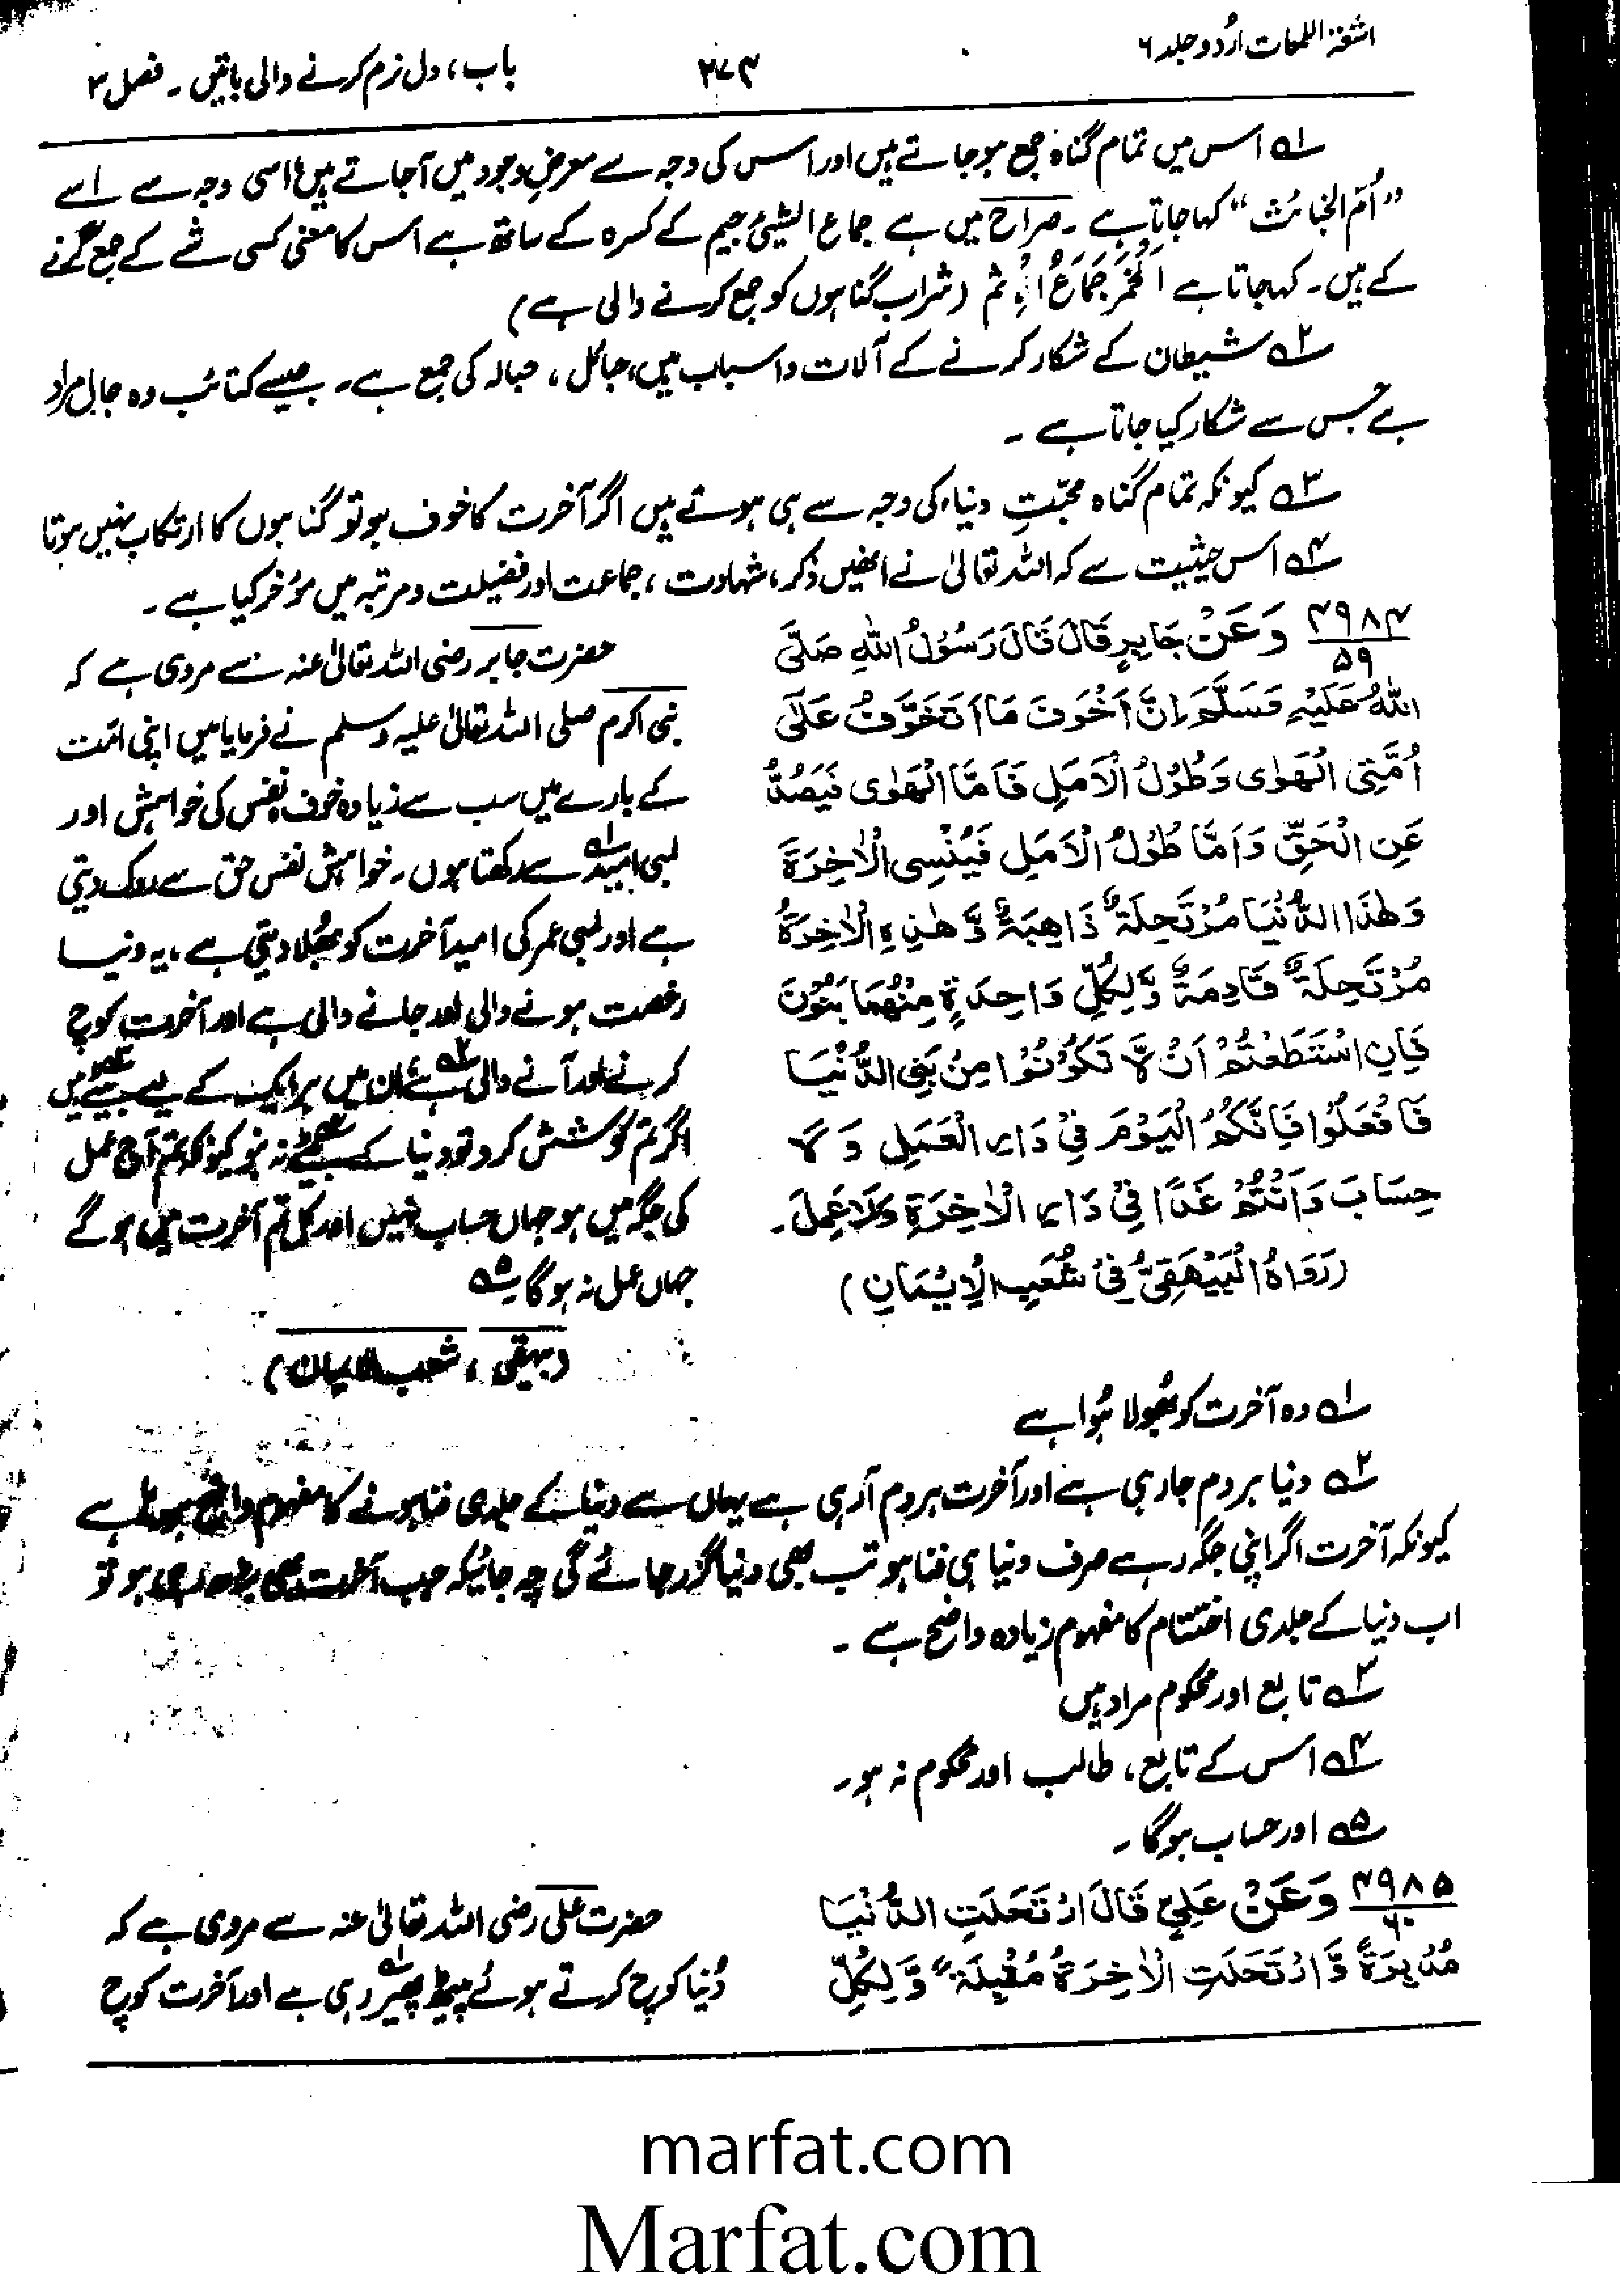 اشعۃ اللمعات اُردو جلد ۶
۲۷۳
باب، دل نرم کرنے والی باتیں ۔ فصل ۳
۱؎ اس میں تمام گناہ جمع ہو جاتے ہیں اور اس کی وجہ سے معرضِ وجود میں آجاتے ہیں، اسی وجہ سے اسے
"اُمّ الخبائث" کہا جاتا ہے ۔ صراح میں ہے جماع الشیئ جیم کے کسرہ کے ساتھ ہے اس کا معنیٰ کسی شے کے جمع کرنے
کے ہیں ۔ کہا جاتا ہے اَلْخَمْرُ جَمَاعُ الْاِثْم (شراب گناہوں کو جمع کرنے والی ہے)
۲؎ شیطان کے شکار کرنے کے آلات و اسباب ہیں، حبائل ، حبالہ کی جمع ہے۔ جیسے کتائب وہ جال مراد
ہے جس سے شکار کیا جاتا ہے ۔
۳؎ کیونکہ تمام گناہ محبّتِ دنیاء کی وجہ سے ہی ہوتے ہیں اگر آخرت کا خوف ہو تو گناہوں کا ارتکاب نہیں ہوتا
۴؎ اس حیثیت سے کہ اللہ تعالیٰ نے انھیں ذکر، شہادت ، جماعت اور فضیلت و مرتبہ میں مؤخر کیا ہے ۔
۴۹۸۴
۵۹
وَعَنْ جَابِرٍ قَالَ قَالَ رَسُوْلُ اللهِ صَلَّى
اللهُ عَلَيْهِ وَسَلَّمَ اِنَّ اَخْوَفَ مَا اَتَخَوَّفُ عَلٰى
اُمَّتِى الْهَوٰى وَطُوْلُ الْاَمَلِ فَاَمَّا الْهَوٰى فَيَصُدُّ
عَنِ الْحَقِّ وَاَمَّا طُوْلُ الْاَمَلِ فَيُنْسِى الْاٰخِرَةَ
وَهٰذَا الدُّنْيَا مُرْتَحِلَةٌ ذَاهِبَةٌ وَّهٰذِهِ الْاٰخِرَةُ
مُرْتَحِلَةٌ قَادِمَةٌ وَّلِكُلِّ وَاحِدَةٍ مِنْهُمَا بَنُوْنَ
فَاِنِ اسْتَطَعْتُمْ اَنْ لَّا تَكُوْنُوْا مِنْ بَنِى الدُّنْيَا
فَافْعَلُوْا فَاِنَّكُمُ الْيَوْمَ فِىْ دَارِ الْعَمَلِ وَلَا
حِسَابَ وَاَنْتُمْ غَدًا فِىْ دَارِ الْاٰخِرَةِ وَلَا عَمَلَ۔
(رَوَاهُ الْبَيْهَقِىُّ فِىْ شُعَبِ الْاِيْمَانِ)
حضرت جابر رضی اللہ تعالیٰ عنہ سے مروی ہے کہ
نبی اکرم صلی اللہ تعالیٰ علیہ وسلم نے فرمایا میں اپنی امّت
کے بارے میں سب سے زیادہ خوف نفس کی خواہش اور
لمبی امید۱؎ سے رکھتا ہوں۔ خواہش نفس حق سے روک دیتی
ہے اور لمبی عمر کی امید آخرت کو بھلا دیتی ہے ، یہ دنیا
رخصت ہونے والی اور جانے والی ہے اور آخرت کوچ
کرنے اور آنے والی ہے۲؎ ان میں ہر ایک کے لیے بیٹے۳؎ ہیں
اگر تم کوشش کرو تو دنیا کے بیٹے۴؎ نہ بنو کیونکہ تم آج عمل
کی جگہ میں ہو جہاں حساب نہیں اور کل تم آخرت میں ہو گے
جہاں عمل نہ ہو گا ۵؎
(بیہقی ، شعب الایمان)
۱؎ وہ آخرت کو بھولا ہُوا ہے
۲؎ دنیا ہر دم جا رہی ہے اور آخرت ہر دم آرہی ہے یہاں سے دنیا کے جلدی فنا ہونے کا مفہوم واضح ہوتا ہے
کیونکہ آخرت اگر اپنی جگہ رہے صرف دنیا ہی فنا ہو تب بھی دنیا گزر جائے گی چہ جائیکہ جب آخرت بھی بڑھ رہی ہو تو
اب دنیا کے جلدی اختتام کا مفہوم زیادہ واضح ہے ۔
۳؎ تابع اور محکوم مراد ہیں
۴؎ اس کے تابع ، طالب اور محکوم نہ ہو۔
۵؎ اور حساب ہو گا ۔
۴۹۸۵
۶۰
وَعَنْ عَلِىٍّ قَالَ ارْتَحَلَتِ الدُّنْيَا
مُدْبِرَةً وَّارْتَحَلَتِ الْاٰخِرَةُ مُقْبِلَةً وَّلِكُلِّ
حضرت علی رضی اللہ تعالیٰ عنہ سے مروی ہے کہ
دُنیا کوچ کرتے ہوئے پیٹھ پھیر۱؎ رہی ہے اور آخرت کوچ
marfat.com
Marfat.com